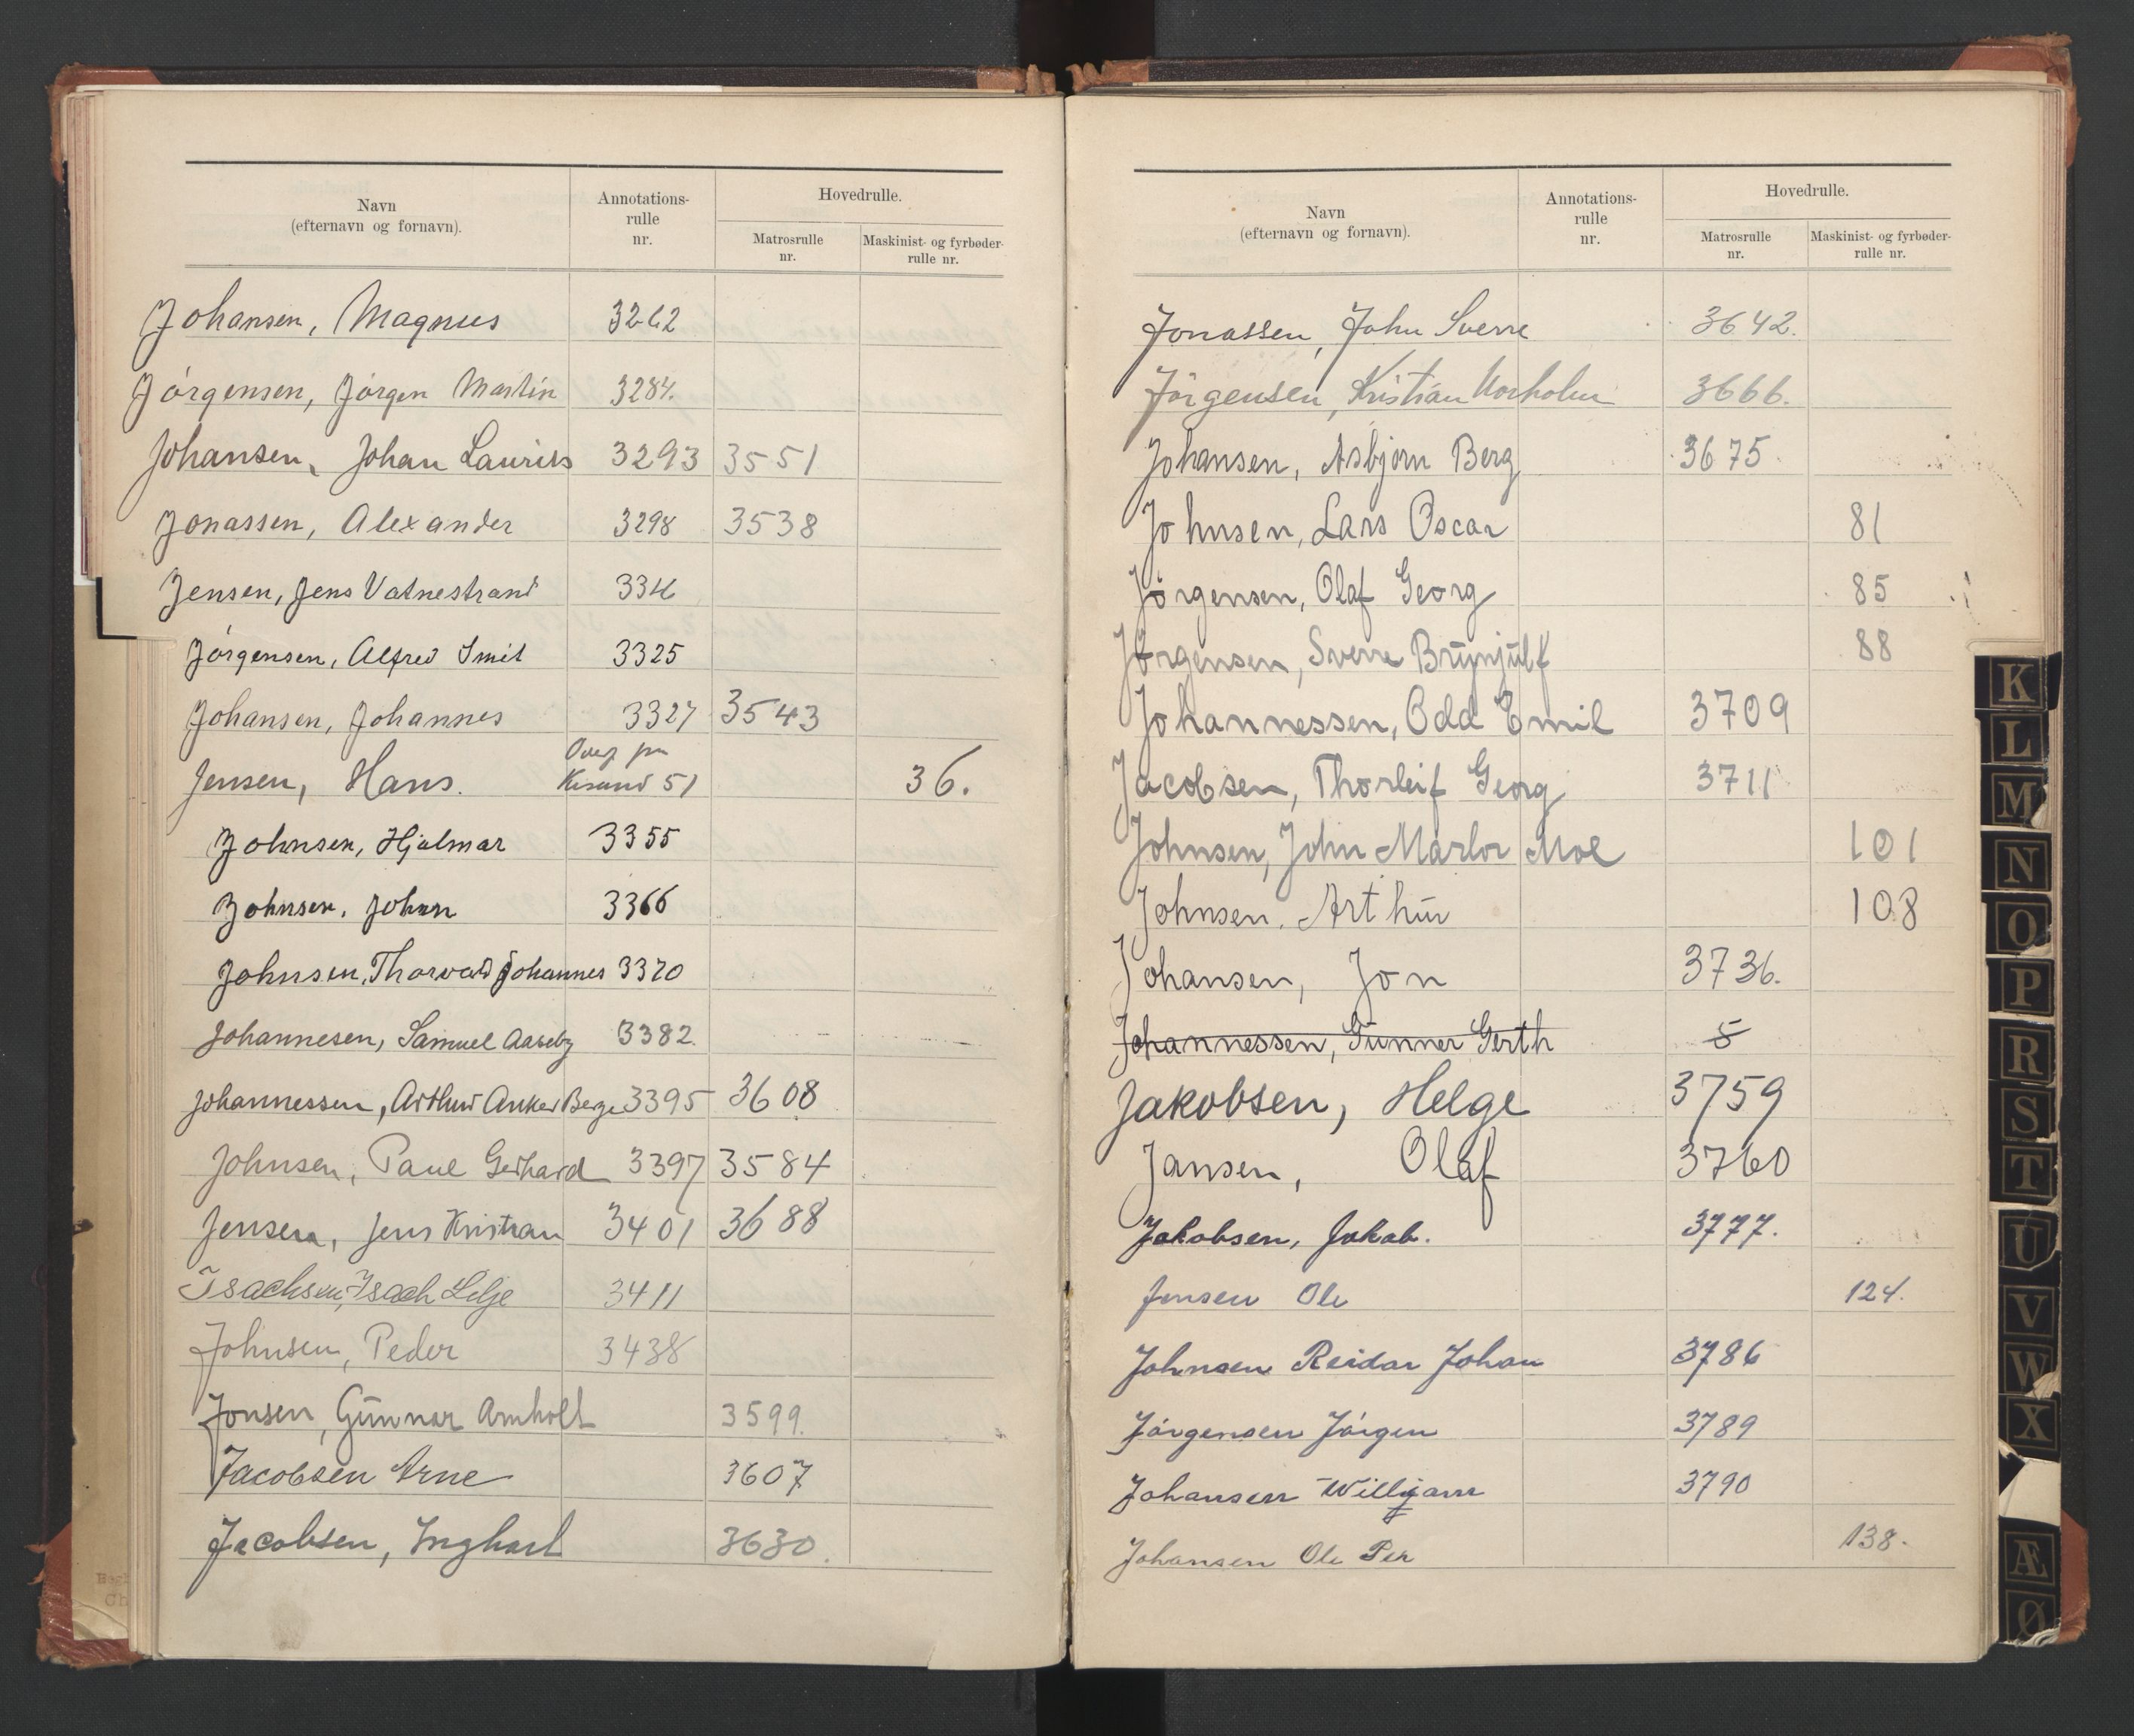 Navn
(efternavn og fornavn).
Annotations-
rulle
nr.
Hovedrulle.
Matrosrulle
nr.
Maskinist- og fyrbøder-
rulle nr.
Johansen, Magnus 3262
Jørgensen, Jørgen Martin 3284.
Johansen, Johan Laurits 3293 3551
Jonassen, Alexander 3298 3538
Jensen, Jens Vatnestrand
Jørgensen, Alfred Smit 3325
Johansen, Johannes 3327 3543
Jensen, Hans. 51 36.
Johnsen, Hjalmar 3355
Johnsen, Johan 3366
Johnsen, Thorvald Johannes 3370
Johannesen, Samuel 3382.
Johannessen, Arthur Anker Berge 3395 3608
Johnsen, Paul Gerhard 3397 3584
Jensen, Jens Kristian 3401 3688
Isachsen, Isach Lilje 3411
Johnsen, Peder 3438
Jonsen, Gunnar Arnholt 3599.
Jacobsen Arne 3607
Jacobsen, Inghart 3630.
Navn
(efternavn og fornavn).
Annotations-
rulle
nr.
Hovedrulle.
Matrosrulle
nr.
Maskinist- og fyrbøder-
rulle nr.
Jonassen, John Sverre 3642.
Jørgensen, Kristian 3666.
Johansen, Asbjørn Berg 3675
Johnsen, Lars Oscar 81
Jørgensen, Olaf Georg 85
Jørgensen, Sverre Brynjulf 88
Johannessen, Odd Emil 3709
Jacobsen, Thorleif Georg 3711
Johnsen, John Moe 101
Johnsen, Arthur 108
Johansen, Jon 3736.
Johannessen, Gunner Gerth 5
Jakobsen, Helge 3759
Jansen, Olaf 3760
Jakobsen, Jakob. 3777.
Jensen Ole 124.
Johnsen Reidar Johan 3786
Jørgensen Jørgen 3789
Johansen Willjam 3790
Johansen Ole Per 138.
K
L
M
N
O
P
R
S
T
U
V
W
X
Æ
Ø